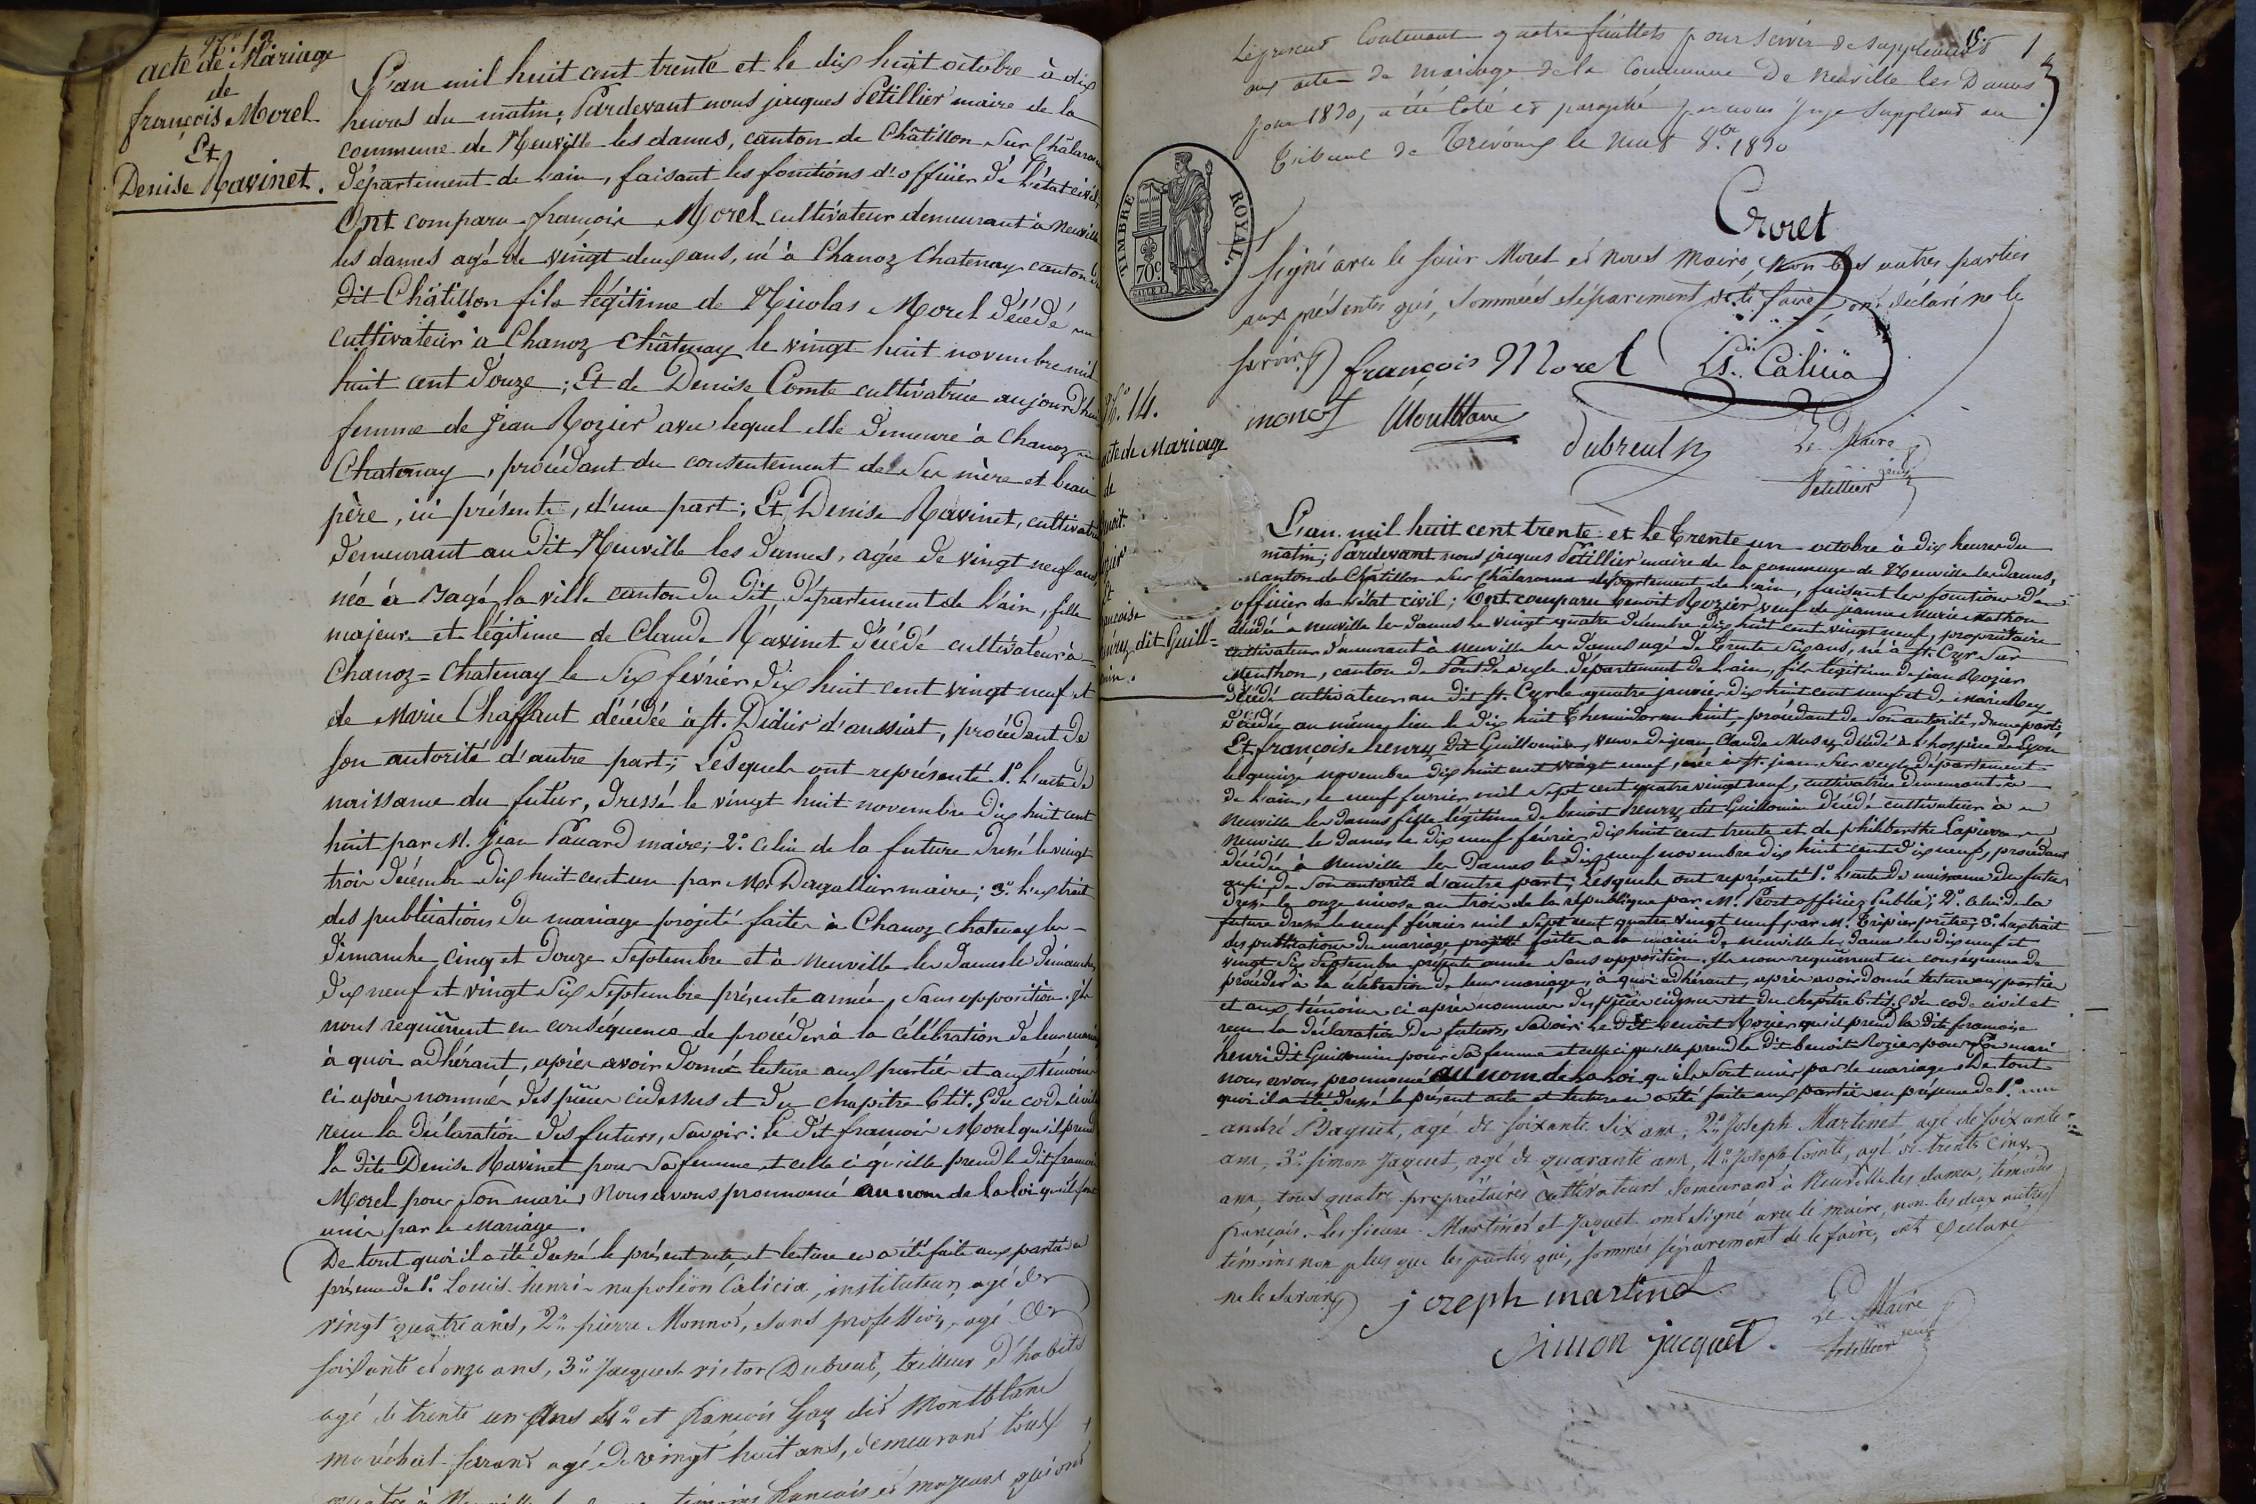 N.° 13
acte de Mariage
de
françois Morel
Et
Denise Ravinet.
L'an mil huit cent trente et le dix huit octobre à dix
heures du matin; Pardevant nous jacques Petillier maire de la
commune de Neuville les dames, canton de Châtillon sur Chalaronne
département de l'ain, faisant les fonctions d'officier de l'état civil;
Ont comparu françois Morel cultivateur demeurant à Neuville
les dames agé de vingt deux ans, né à Chanoz Chatenay canton
dit Châtillon fils légitime de Nicolas Morel décédé
cultivateur à Chanoz Châtenay le vingt huit novembre mil
huit cent douze; Et de Denise Comte cultivatrice aujourd'hui
femme de Jean Rozier avec lequel elle demeure à Chanoz
Chatenay, procédant du consentement de ses mère et beau
père, ici présents, d'une part; Et Denise Ravinet, cultivatrice
demeurant au dit Neuville les dames, agée de vingt neuf ans,
née à Bagé la ville canton du dit, département de l'ain, fille
majeure et légitime de Claude Ravinet décédé cultivateur à
Chanoz = Chatenay le six février dix huit cent vingt neuf et
de Marie Chaffaut décédée à St. Didier d'aussiat, procédant de
son autorité d'autre part; Lesquels ont représenté 1.° L'acte de
naissance du futur, dressé le vingt huit novembre dix huit cent
huit par M. Jean Pauard maire; 2.° celui de la future dressé le vingt
trois décembre dix huit cent un par Mr. Dagallier maire; 3.° l'extrait
des publications du mariage projeté faites à Chanoz Chatenay les
dimanche cinq et douze Septembre et à Neuville les dames les dimanches
dix neuf et vingt six Septembre présente année, sans opposition. ils
nous requièrent en conséquence de procéder à la célébration de leur mariage
à quoi adhérant, après avoir donné lecture aux parties et aux témoins
ci après nommés des pièces cidessus et du chapitre 6 tit. 5 du code civil
reçu la déclaration des futurs, savoir: le dit françois Morel qu'il prend
la dite Denise Ravinet pour sa femme et celle ci qu'elle prend le dit françois
Morel pour son mari; Nous avons prononcé au nom de la loi qu'ils sont
unis par le Mariage.
De tout quoi il a été dressé le présent acte, et lecture en a été faite aux parties en
présence de 1.° Louis-henri-napoléon Calicia, instituteur, agé de
vingt quatre ans, 2.° pierre Monnot, sans profession, agé de
soixante et onze ans, 3.° Jacques victor Dubreul, tailleur d'habits
agé de trente un ans 4.° et françois Gay dit Montblanc
maréchal-ferrant agé de vingt huit ans, demeurant tous
quatre à Neuville témoins français et majeurs qui ont
Le présent Contenant quatre feuillets pour servir de supplément
aux actes de mariage de la Commune De Neuville les Dames
pour 1830, a été Coté et paraphé par nous Juge Suppléant au
Tribunal de Trévoux le huit 8.bre 1830
Croret
TIMBRE ROYAL.
70c
Signé avec le sieur Morel et nous Maire, Non les autres parties
aux présentes qui, sommées séparement de le faire, ont déclaré ne le
savoir.
françois Morel
Ls. Calicia
monot
Montblanc
Dubreul
Le Maire
Petillier
N.° 14.
acte de Mariage
de
Benoit
Rozier
Et
françoise
henry dit Guill=
L'an mil huit cent trente et le trente un octobre à dix heures du
matin; Pardevant nous jacques Petillier maire de la commune de Neuville les dames,
canton de Châtillon sur Chalaronne département de l'ain, faisant les fonctions d'
officier de l'état civil; Ont comparu benoit Rozier veuf de jeanne Marie Mathon
décédée à Neuville les dames le vingt quatre décembre dix huit cent vingt neuf, propriétaire
cultivateur demeurant à Neuville les dames agé de trente six ans, né à St. Cyr sur
Menthon, canton de Pont de veyle département de l'ain, fils légitime de jean Rozier
décédé cultivateur au dit St. Cyr le quatre janvier dix huit cent neuf et de Marie Rey
décédée au même lieu le dix huit thermidor an huit, procédant de son autorité, d'une part;
Et françoise henry dit Guillomin, veuve de jean Claude Musy décédé à l'hospice de Lyon
le quinze novembre dix huit cent vingt neuf, née à St. jean sur veyle département
de l'ain, le neuf février mil sept cent quatre vingt neuf, cultivatrice demeurant à
Neuville les dames fille légitime de benoit henry dit Guillomin décédé cultivateur à
Neuville les dames le dix neuf février dix huit cent trente et de philiberthe Lapierre
décédée à Neuville les dames le dix neuf novembre dix huit cent dix neuf, procédant
aussi de son autorité d'autre part; Lesquels ont représenté 1.° l'acte de naissance du futur
dressé le onze nivose an trois de la république par Mr. Prost officier Public; 2.° celui de la
future dressé le neuf février mil sept cent quatre vingt neuf par M. Tripier prêtre; 3.° l'extrait
des publications du mariage projetté faites à la mairie de Neuville les dames les dix neuf et
vingt six Septembre présente année sans opposition. Ils nous requièrent en conséquence de
procéder à la célébration de leur mariage, à quoi adhérant, après avoir donné lecture aux parties
et aux témoins ci après nommés des pièces cidessus et du chapitre 6. tit. 5 du code civil et
reçu la déclaration des futurs, savoir: le dit benoit Rozier qu'il prend la dite françoise
henri dit Guillomin pour sa femme et celle ci qu'elle prend le dit benoit Rozier pour son mari
nous avons prononcé au nom de la Loi qu'ils sont unis par le mariage. De tout
quoi il a été dressé le présent acte et lecture en a été faite aux parties en présence de 1.°
andré Bayet, agé de soixante six ans, 2.° Joseph Martinet agé de soixante
ans, 3.° simon Jaquet, agé de quarante ans, 4.° Joseph Comte, agé de trente cinq
ans, tous quatre propriétaires cultivateurs demeurant à Neuville les dames, témoins
français. Les sieurs Martinet et Jaquet ont signé avec le maire, non les deux autres
témoins non plus que les parties qui, sommés séparement de le faire, ont déclaré
ne le savoir.
joseph martinet
Simon jacquet.
Le Maire
Petillier